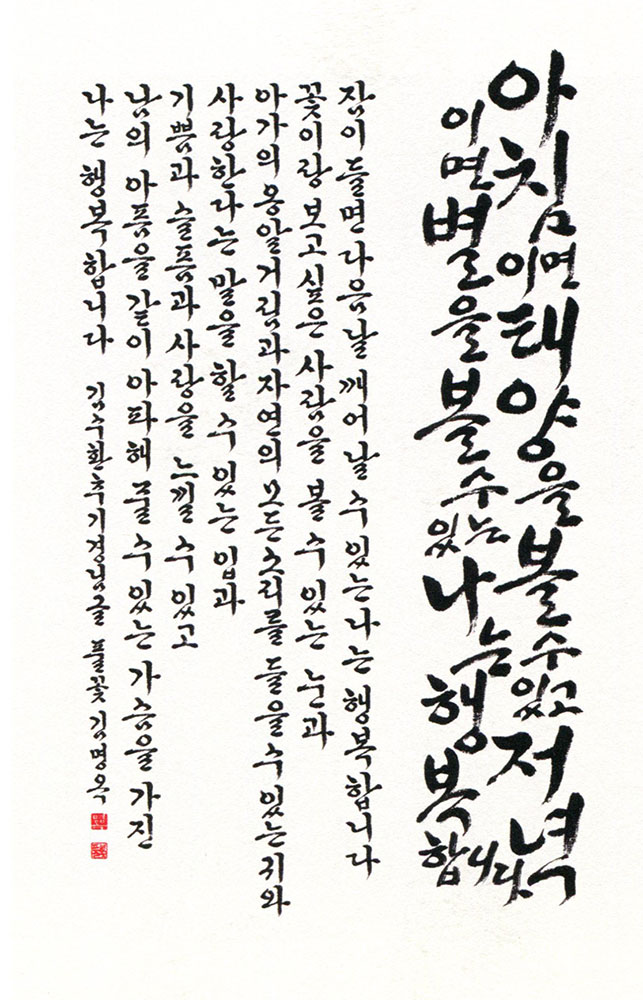 아침이면 태양을 볼 수 있고 저녁
이면 별을 볼 수 있는 나는 행복합니다.
잠이 들면 다음날 깨어날 수 있는 나는 행복합니다
꽃이랑 보고싶은 사람을 볼 수 있는 눈과
아가의 옹알거림과 자연의 모든 소리를 들을 수 있는 귀와
사랑한다는 말을 할 수 있는 입과
기쁨과 슬픔과 사랑을 느낄 수 있고
남의 아픔을 같이 아파해 줄 수 있는 가슴을 가진
나는 행복합니다 김수환추기경님글 풀꽃 김명옥